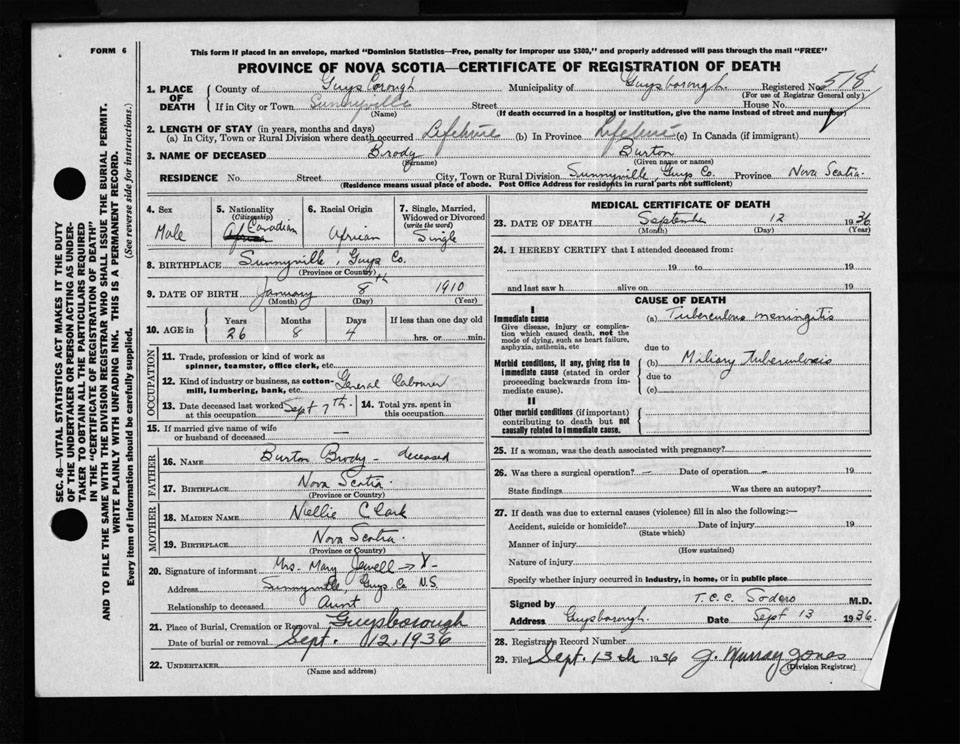 FORM 6
This form if placed in an envelope, marked "Dominion Statistics—Free, penalty for improper use $300," and properly addressed will pass through the mail "FREE"
PROVINCE OF NOVA SCOTIA—CERTIFICATE OF REGISTRATION OF DEATH
1. PLACE OF DEATH County of Guysborough Municipality of Guysborough. Registered No. 518
(For use of Registrar General only)
If in City or Town Sunnyville Street House No.
(Name) (If death occurred in a hospital or institution, give the name instead of street and number)
2. LENGTH OF STAY (in years, months and days)
(a) In City, Town or Rural Division where death occurred Lifetime (b) In Province Lifetime (c) In Canada (if immigrant)
3. NAME OF DECEASED Brody Burton
(Surname) (Given name or names)
RESIDENCE No. Street City, Town or Rural Division Sunnyville Guys Co. Province Nova Scotia.
(Residence means usual place of abode. Post Office Address for residents in rural parts not sufficient)
SEC. 46—VITAL STATISTICS ACT MAKES IT THE DUTY
OF THE UNDERTAKER OR PERSON ACTING AS UNDER-
TAKER TO OBTAIN ALL THE PARTICULARS REQUIRED
IN THE "CERTIFICATE OF REGISTRATION OF DEATH"
AND TO FILE THE SAME WITH THE DIVISION REGISTRAR WHO SHALL ISSUE THE BURIAL PERMIT.
WRITE PLAINLY WITH UNFADING INK. THIS IS A PERMANENT RECORD.
Every item of information should be carefully supplied. (See reverse side for instructions.)
4. Sex
Male
5. Nationality
(Citizenship)
Canadian
6. Racial Origin
African
7. Single, Married,
Widowed or Divorced
(write the word)
Single
8. BIRTHPLACE Sunnyville, Guys Co.
(Province or Country)
9. DATE OF BIRTH January 8th 1910
(Month) (Day) (Year)
10. AGE in Years Months Days If less than one day old
26 8 4 hrs. or min.
OCCUPATION
11. Trade, profession or kind of work as
spinner, teamster, office clerk, etc.
12. Kind of industry or business, as cotton-
mill, lumbering, bank, etc. General Labourer
13. Date deceased last worked
at this occupation Sept 7th.
14. Total yrs. spent in
this occupation
15. If married give name of wife
or husband of deceased —
FATHER
16. NAME Burton Brody - deceased
17. BIRTHPLACE Nova Scotia.
(Province or Country)
MOTHER
18. MAIDEN NAME Nellie Clark
19. BIRTHPLACE Nova Scotia.
(Province or Country)
20. Signature of informant Mrs. Mary Jewell
Address Sunnyville, Guys Co N.S
Relationship to deceased Aunt
21. Place of Burial, Cremation or Removal Guysborough
Date of burial or removal Sept. 12, 1936
22. UNDERTAKER
(Name and address)
MEDICAL CERTIFICATE OF DEATH
23. DATE OF DEATH September 12 1936
(Month) (Day) (Year)
24. I HEREBY CERTIFY that I attended deceased from:
19 to 19
and last saw h alive on 19
CAUSE OF DEATH
I
Immediate cause
Give disease, injury or complica-
tion which caused death, not the
mode of dying, such as heart failure,
asphyxia, asthenia, etc
(a) Tuberculous meningitis
due to
Morbid conditions, if any, giving rise to
immediate cause (stated in order
proceeding backwards from im-
mediate cause).
(b) Miliary tuberculosis
due to
(c)
II
Other morbid conditions (if important)
contributing to death but not
causally related to immediate cause.
25. If a woman, was the death associated with pregnancy?
26. Was there a surgical operation? — Date of operation — 19
State findings Was there an autopsy?
27. If death was due to external causes (violence) fill in also the following:—
Accident, suicide or homicide? Date of injury 19
(State which)
Manner of injury
(How sustained)
Nature of injury
Specify whether injury occurred in industry, in home, or in public place
Signed by T.C.C. Sodero M.D.
Address Guysborough. Date Sept 13 1936.
28. Registrar's Record Number
29. Filed Sept. 13th 1936 J. Murray Jones
(Division Registrar)